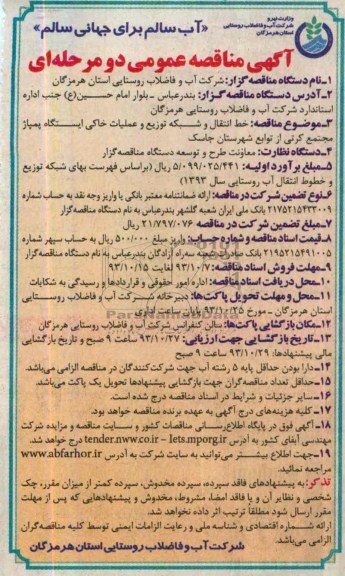 وزارت نیرو
شرکت آب و فاضلاب روستایی
استان هرمزگان
«آب سالم برای جهانی سالم»
آگهی مناقصه عمومی دو مرحله‌ای
۱-نام دستگاه مناقصه گزار: شرکت آب و فاضلاب روستایی استان هرمزگان
۲-آدرس دستگاه مناقصه گزار: بندرعباس ـ بلوار امام حسین(ع) جنب اداره
استاندارد شرکت آب و فاضلاب روستایی هرمزگان
۳-موضوع مناقصه: خط انتقال و شبکه توزیع و عملیات خاکی ایستگاه پمپاژ
مجتمع کرتی از توابع شهرستان جاسک
۴-دستگاه نظارت: معاونت طرح و توسعه دستگاه مناقصه‌گزار
۵-مبلغ برآورد اولیه: ۵/۰۹۹/۰۲۵/۴۴۱ ریال (براساس فهرست بهای شبکه توزیع
و خطوط انتقال آب روستایی سال ۱۳۹۳)
۶-نوع تضمین شرکت در مناقصه: ارائه ضمانتنامه معتبر بانکی یا واریز وجه نقد به حساب شماره
۲۱۷۵۲۱۵۴۳۳۰۰۹ بانک ملی ایران شعبه گلشهر بندرعباس به نام دستگاه مناقصه‌گزار
۷-مبلغ تضمین شرکت در مناقصه ۲۱/۷۹۷/۰۷۶ ریال
۸-قیمت اسناد مناقصه و شماره حساب: واریز مبلغ ۵۰۰/۰۰۰ ریال به حساب سپهر شماره
۲۱۹۵۲۱۵۴۹۱۰۰۵ بانک صادرات شعبه سه‌راه آزادگان بندرعباس به نام دستگاه مناقصه گزار
۹-مهلت فروش اسناد مناقصه: ۹۳/۱۰/۷ لغایت ۹۳/۱۰/۱۵
۱۰-محل دریافت اسناد مناقصه: اداره امور حقوقی و قراردادها و رسیدگی به شکایات
۱۱-محل و مهلت تحویل پاکت‌ها: دبیرخانه شرکت آب و فاضلاب روستایی
استان هرمزگان ـ مورخ ۹۳/۱۰/۲۵ پایان ساعت اداری
۱۲-مکان بازگشایی پاکت‌ها: سالن کنفرانس شرکت آب و فاضلاب روستایی هرمزگان
۱۳-تاریخ بازگشایی جهت ارزیابی: ۹۳/۱۰/۲۷ ساعت ۹ صبح و تاریخ بازگشایی
مالی پیشنهادها: ۹۳/۱۰/۲۹ ساعت ۹ صبح
۱۴-دارا بودن حداقل پایه ۵ رشته آب جهت شرکت‌کنندگان در مناقصه الزامی می‌باشد.
۱۵-حداقل تعداد مناقصه‌گران جهت بازگشایی پیشنهادها تحویل یک پاکت می‌باشد.
۱۶-سایر جزئیات و شرایط در اسناد مناقصه درج شده است.
۱۷-کلیه هزینه‌های درج آگهی به عهده برنده مناقصه خواهد بود.
۱۸-آگهی فوق در پایگاه اطلاع‌رسانی مناقصات کشور و سایت مناقصه و مزایده شرکت
مهندسی آبفای کشور به آدرس tender.nww.co.ir – Iets.mporg.ir درج خواهد شد.
۱۹-جهت اطلاع بیشتر می‌توانید به سایت شرکت به آدرس www.abfarhor.ir
مراجعه نمائید.
تذکر: به پیشنهادهای فاقد سپرده، سپرده مخدوش، سپرده کمتر از میزان مقرر، چک
شخصی و نظایر آن و یا فاقد امضا، مشروط، مخدوش و پیشنهادهایی که پس از مهلت
مقرر ارسال شود مطلقاً ترتیب اثر داده نخواهد شد.
ارائه شماره اقتصادی و شناسه ملی و رعایت الزامات ایمنی توسط کلیه مناقصه‌گران
الزامی می‌باشد.
شرکت آب و فاضلاب روستایی استان هرمزگان